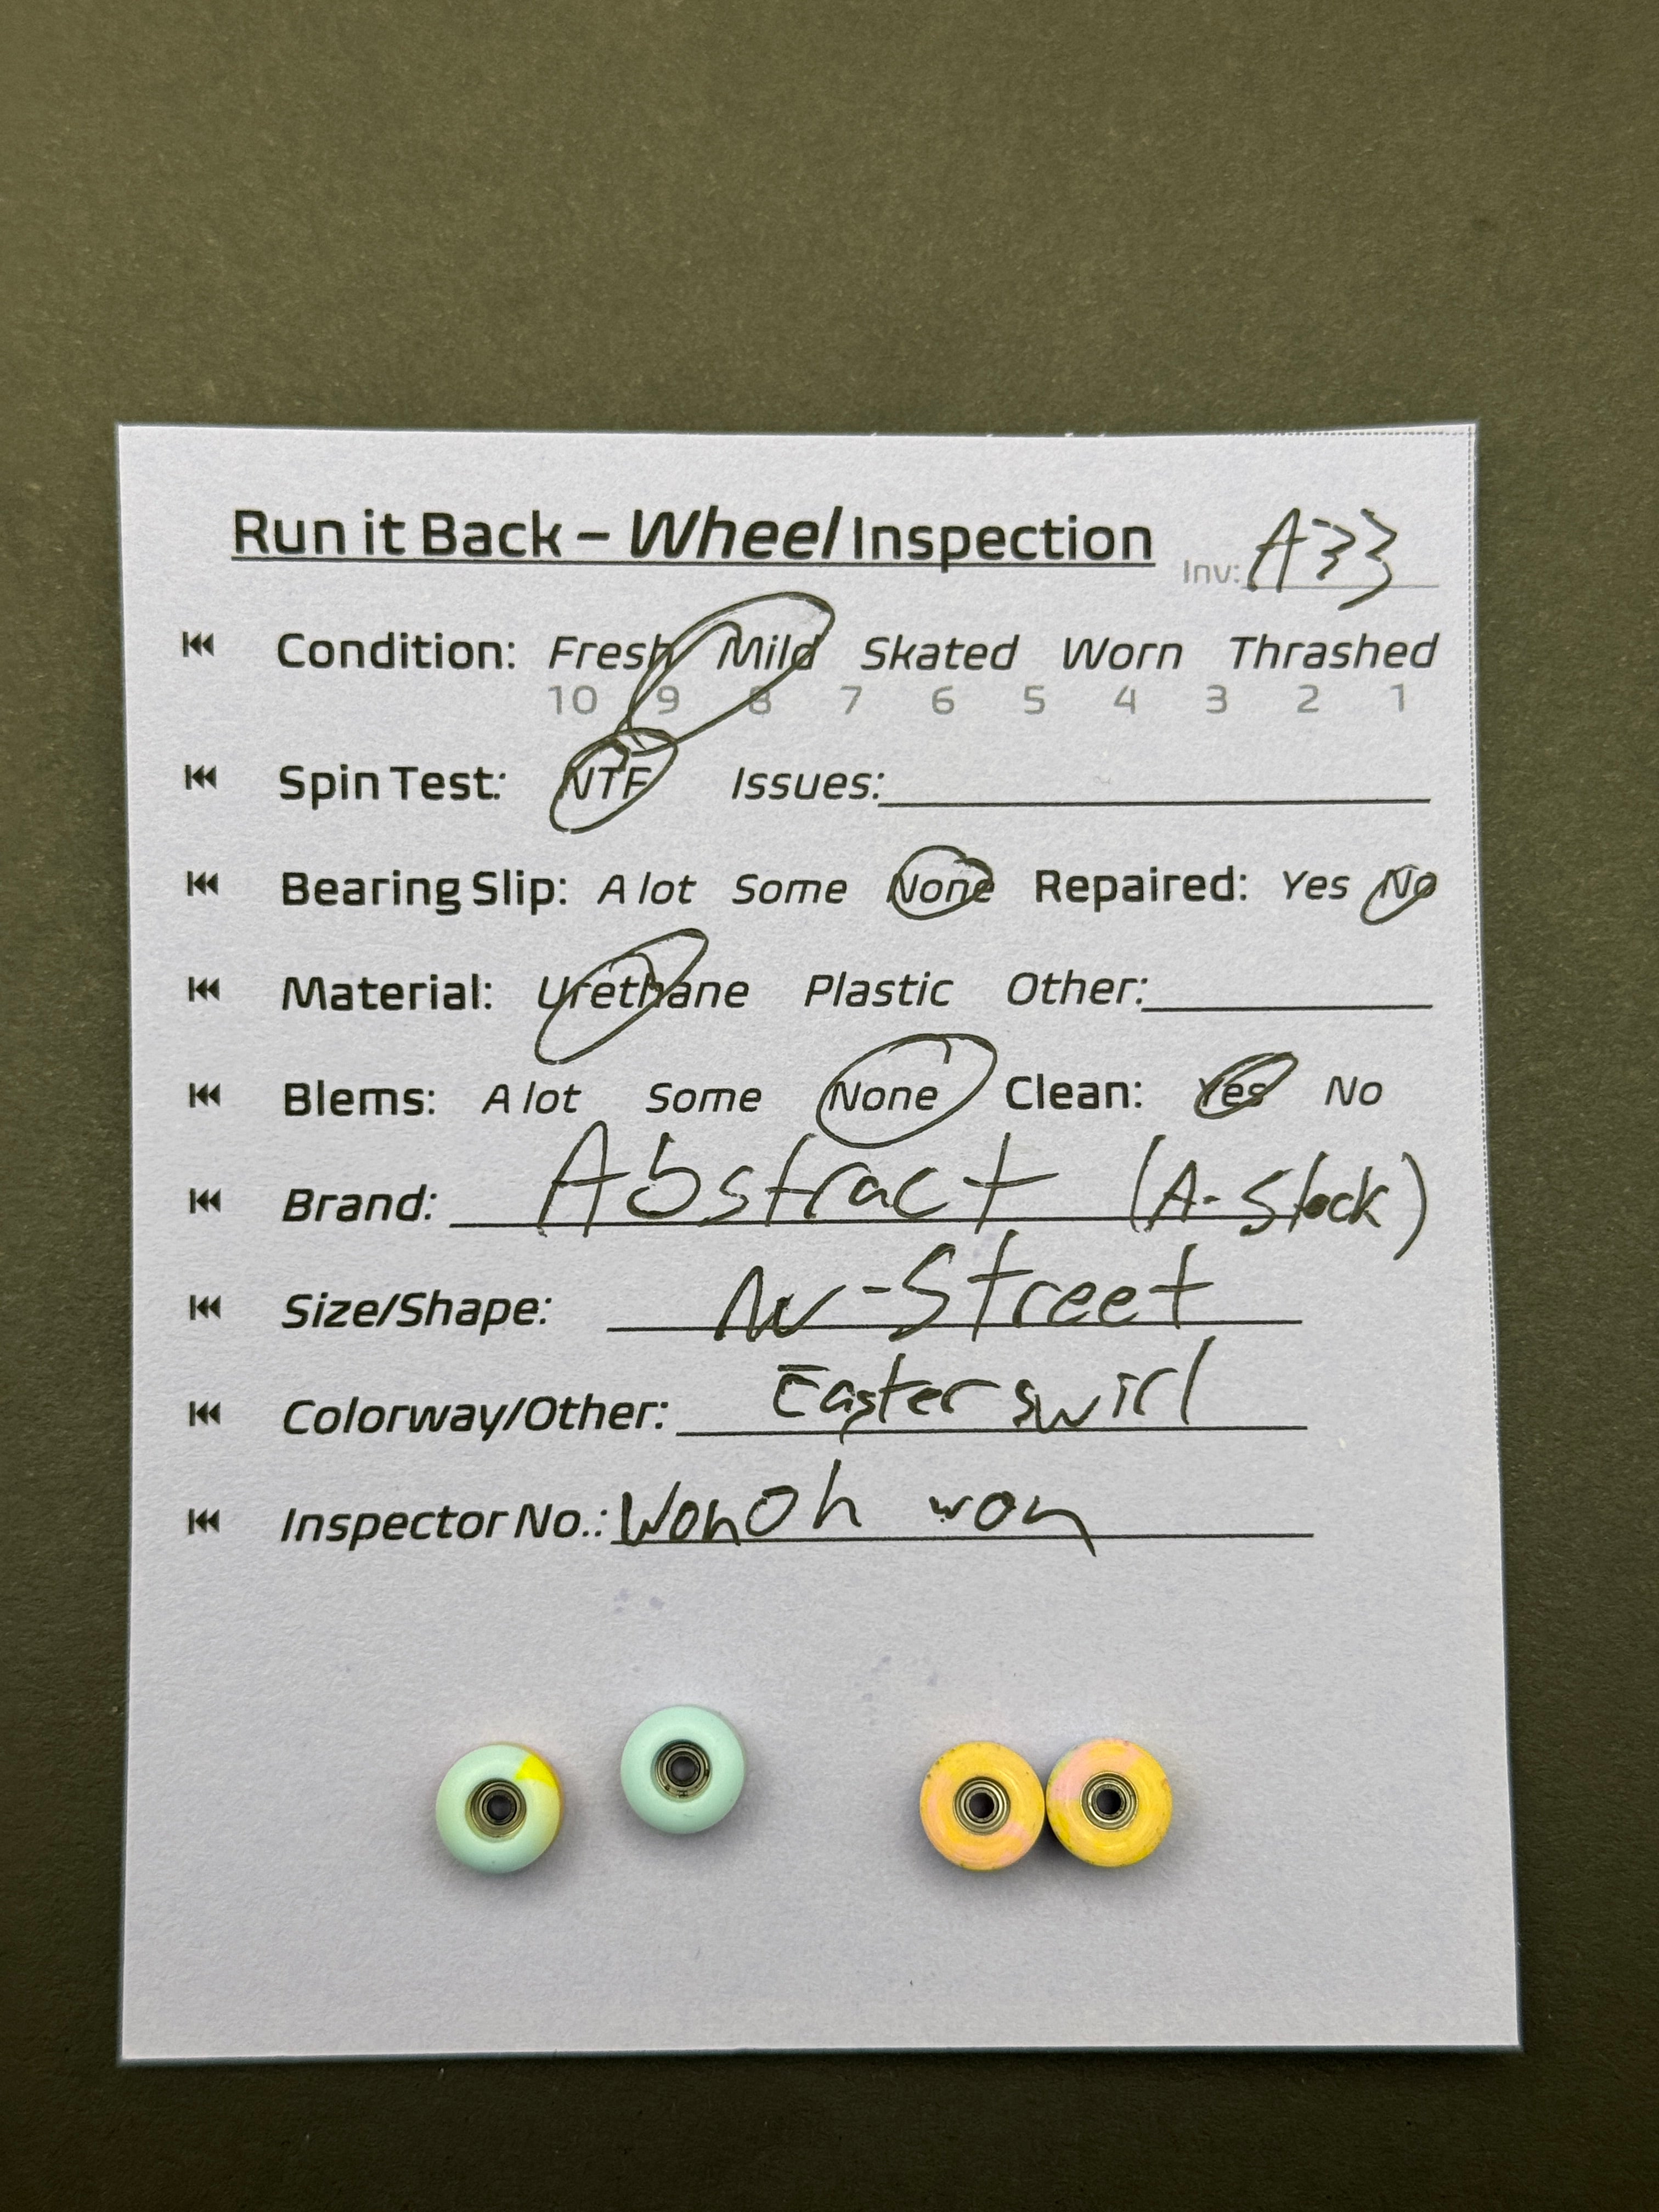 Run it Back – Wheel Inspection Inv: A33
Condition: Fresh Mild Skated Worn Thrashed
10 9 8 7 6 5 4 3 2 1
Spin Test: NTF Issues:
Bearing Slip: A lot Some None Repaired: Yes No
Material: Urethane Plastic Other:
Blems: A lot Some None Clean: Yes No
Brand: Abstract (A-Stock)
Size/Shape: -Street
Colorway/Other: Easter swirl
Inspector No.: Won Oh won